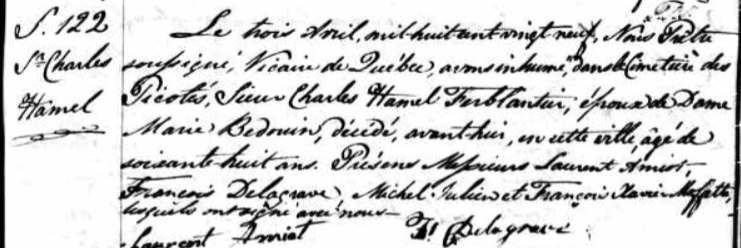 S. 122
Sr Charles
Hamel
Le trois Avril, mil huit cent vingt neuf, Nous Prêtre
soussigné, Vicaire de Québec, avons inhumé, dans le Cimetière des
Picotés, Sieur Charles Hamel Ferblantier, époux de Dame
Marie Bedouin, décédé, avant hier, en cette ville, âgé de
soixante huit ans. Présens Messieurs Laurent Amiot,
François Delagrave, Michel Julien et François Xavier
lesquels ont signé avec nous
Laurent Amiot Fs Delagrave